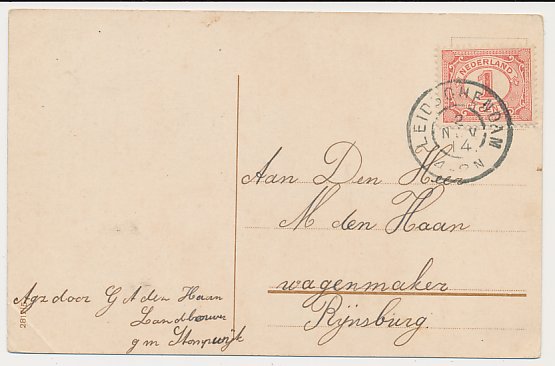 NEDERLAND
1
CENT
LEIDSCHENDAM
2
NOV
14
4-8N
Aan Den Heer
M den Haan
wagenmaker
Rijnsburg
Agz door G A den Haan
Landbouwer
gm Stompwijk